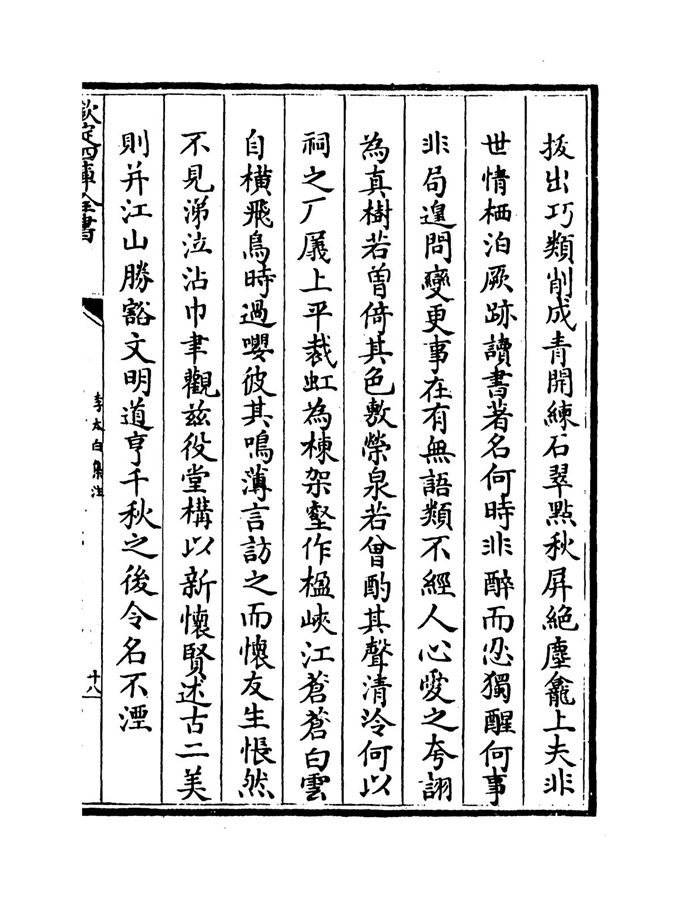 拔出巧類削成青開練石翠點秋屏絕塵龕上夫非
世情栖泊厥跡讀書著名何時非醉而忍獨醒何事
非局遑問變更事在有無語類不經人心愛之夸詡
為真樹若曽倚其色敷榮泉若曾酌其聲清泠何以
祠之厂屧上平裁虹為棟架壑作楹峽江蒼蒼白雲
自橫飛鳥時過嚶彼其鳴薄言訪之而懷友生悵然
不見涕泣沾巾聿觀兹役堂構以新懷賢述古二美
則并江山勝豁文明道亨千秋之後令名不湮
欽定四庫全書
李太白集注
十八